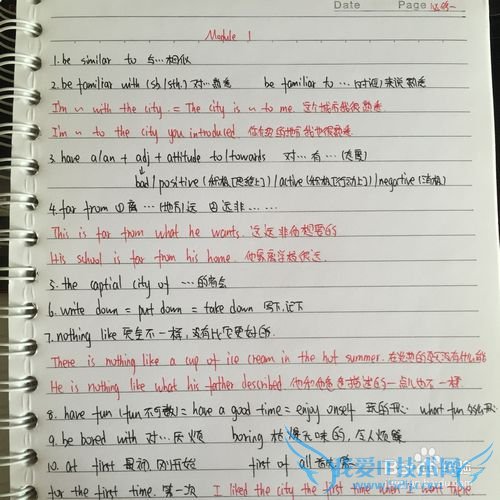 Date Page 必修一
Module 1
1. be similar to 与…相似
2. be familiar with (sb/sth.) 对…熟悉 be familiar to …(对谁)来说熟悉
I'm ~ with the city. = The city is ~ to me. 这个城市我很熟悉
I'm ~ to the city you introduced.
3. have a/an + adj + attitude to/towards 对…有…(态度)
bad/positive (积极[思想上])/active(积极[行动上])/negative (消极)
4. far from ①离…(地方)远 ②远非……
This is far from what he wants. 这远非他想要的
His school is far from his home. 他家离学校很远
5. the captial city of …的省会
6. write down = put down = take down 写下,记下
7. nothing like 完全不一样,没有比它更好的.
There is nothing like a cup of ice cream in the hot summer.
He is nothing like what his father described 他和他爸爸描述的一点也不一样
8. have fun (fun不可数) = have a good time = enjoy onself 玩的开心 what fun
9. be bored with 对…厌烦 boring 枯燥无味的,令人烦
10. at first 最初,刚开始 first of all
for the first time. 第一次 I liked the city the first time when I went there